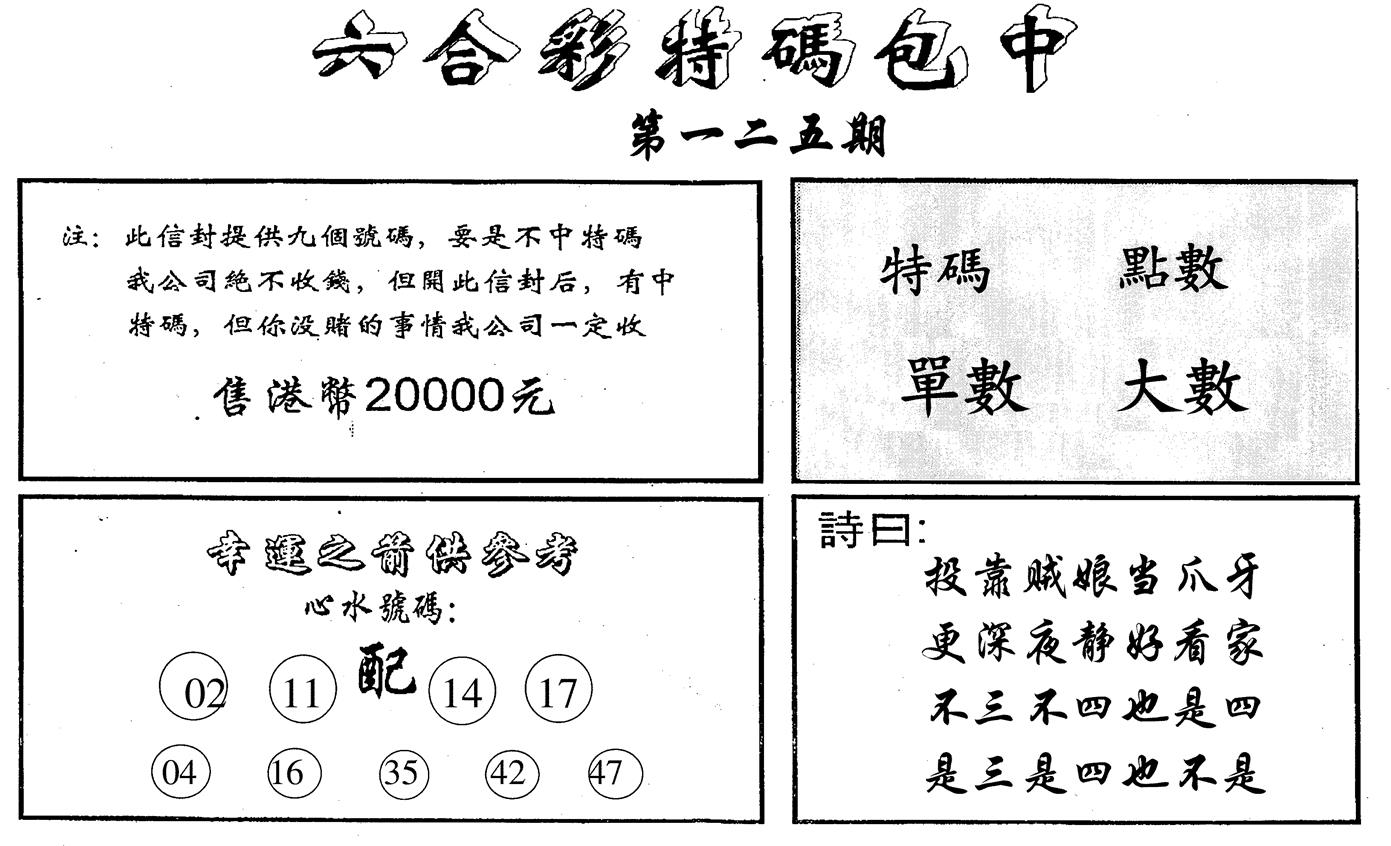 六合彩特碼包中
第一二五期
注：此信封提供九個號碼，要是不中特碼
我公司絕不收錢，但開此信封后，有中
特碼，但你没賭的事情我公司一定收
售港幣20000元
特碼 點數
單數 大數
幸運之箭供參考
心水號碼：
02 11 配 14 17
04 16 35 42 47
詩曰：
投靠贼娘当爪牙
更深夜静好看家
不三不四也是四
是三是四也不是